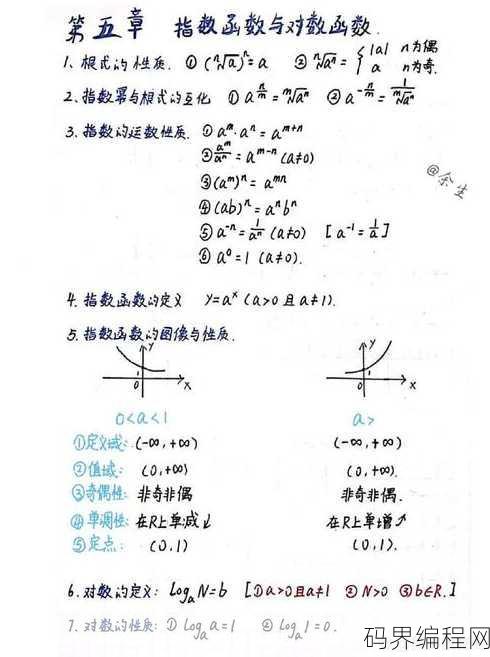 第五章 指数函数与对数函数.
1、根式的性质. ① (ⁿ√a)ⁿ=a ② ⁿ√aⁿ = { |a| n为偶
a n为奇.
2、指数幂与根式的互化 ① a^(n/m) = ᵐ√aⁿ ② a^(-n/m) = 1/ᵐ√aⁿ
3、指数的运数性质. ① aᵐ·aⁿ = aᵐ⁺ⁿ
② aᵐ/aⁿ = aᵐ⁻ⁿ (a≠0)
③ (aᵐ)ⁿ = aᵐⁿ
@余生
④ (ab)ⁿ = aⁿbⁿ
⑤ a⁻ⁿ = 1/aⁿ (a≠0) [a⁻¹ = 1/a]
⑥ a⁰ = 1 (a≠0).
4、指数函数的定义 y=aˣ (a>0 且 a≠1).
5、指数函数的图像与性质.
y y
1 1
0 x 0 x
0<a<1 a>
①定义域: (-∞,+∞) (-∞,+∞)
②值域: (0,+∞) (0,+∞).
③奇偶性: 非奇非偶 非奇非偶.
④单调性: 在R上单减↓ 在R上单增↗
⑤定点: (0,1) (0,1).
6、对数的定义: LogₐN=b [①a>0且a≠1 ②N>0 ③b∈R.]
7、对数的性质: ① Logₐa=1 ② Logₐ1=0.
码界编程网